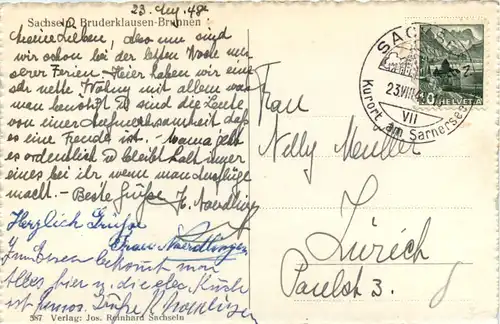 23. Aug. 48.
Sachseln, Bruderklausen-Brunnen
meine Lieben, also nun sind
wir schon bei der letzten Woche un-
serer Ferien. Hier haben wir eine
sehr nette Wohng mit allem was
man benötigt. Es sind die Leute
von einer Aufmerksamkeit dass
es eine Freude ist. - mama geht
es ordentlich. Es bleibt halt immer
eines bei ihr wenn man Ausflüge
macht. - Beste Grüsse
Herzlich Grüsse
Frau Noerdlinger
bekommt man
Alles hier u. die
ist famos. Grüsse
587 Verlag: Jos. Reinhard Sachseln
Frau
Nelly Meuller
Zürich
Paulst 3.
SACHSELN
23.VIII
VII
Kurort am Sarnersee
10 HELVETIA